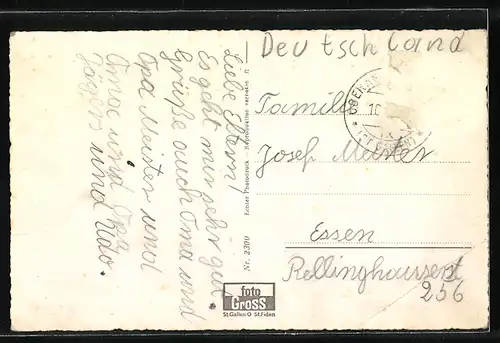 Liebe Eltern!
Es geht mir sehr gut.
Grüße auch Oma und
Opa Meister und
Oma und Opa
Jäger und Udo.
Echter Photodruck Reproduktion verboten
Nr. 2300
foto
GROSS
St.Gallen O St.Fiden
Deutschland
Familie
Josef Meister
Essen
Rellinghauserst
256